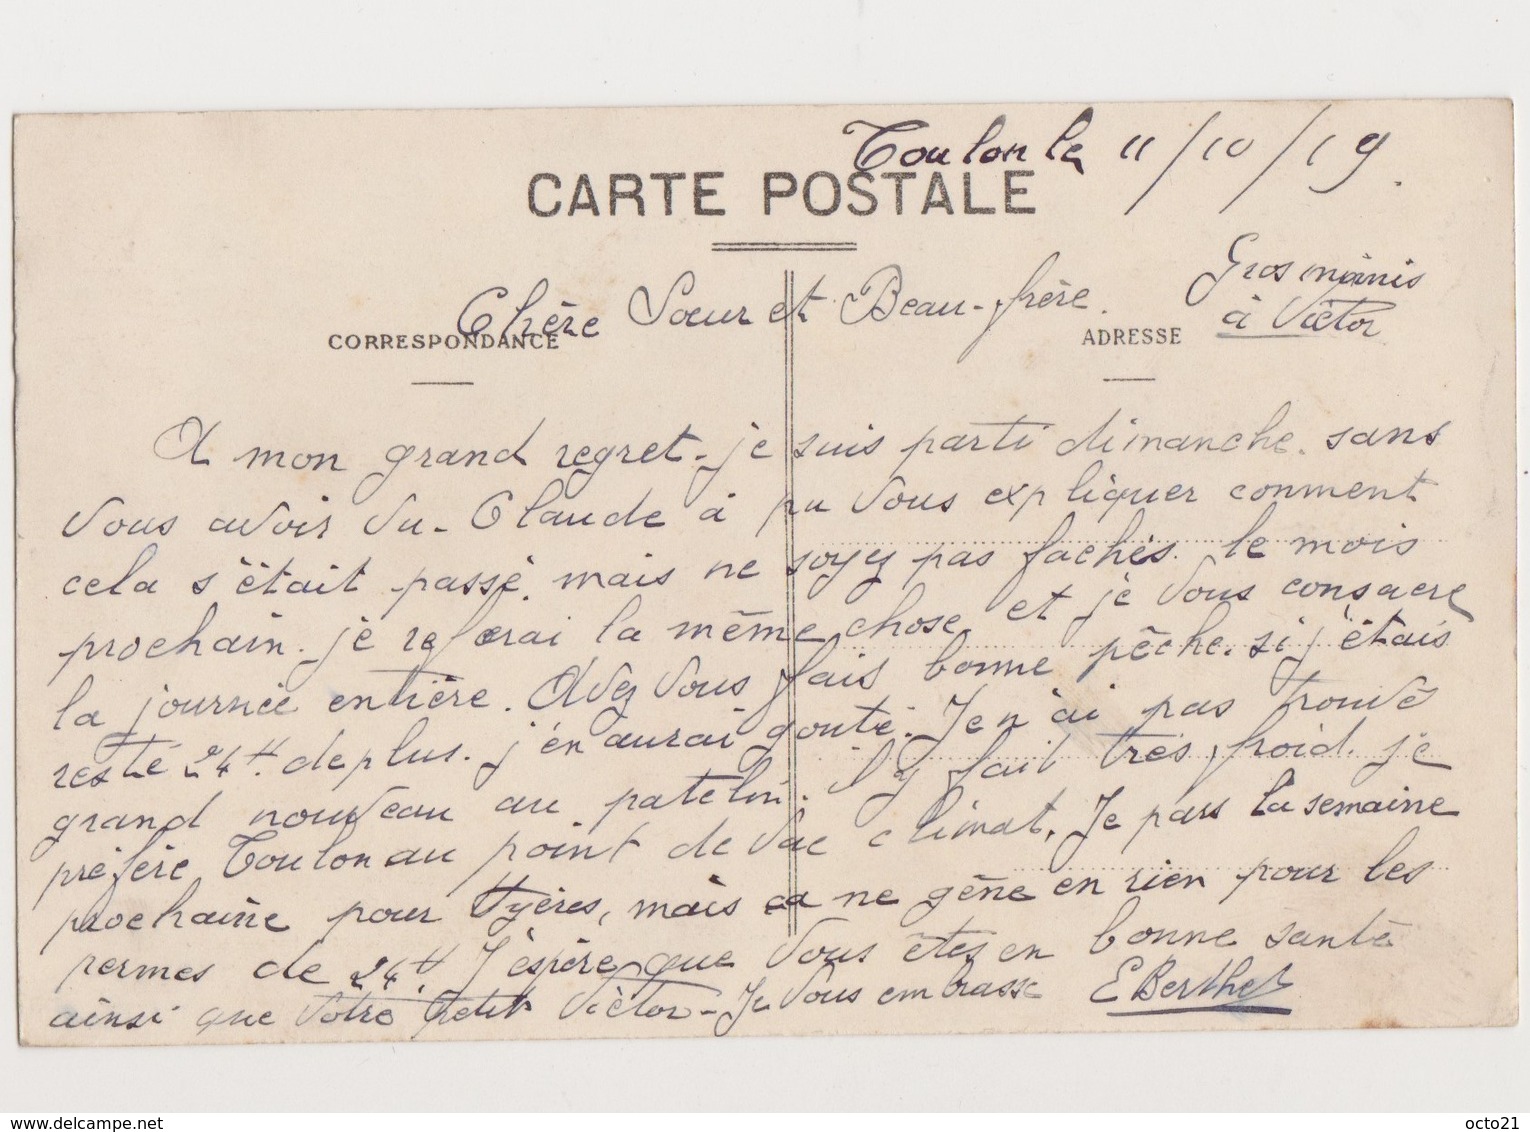 Toulon le 11/10/19.
CARTE POSTALE
Gros mimis
à Victor
Chère Soeur et Beau-frère.
CORRESPONDANCE
ADRESSE
A mon grand regret. je suis parti dimanche. sans
vous avoir vu. Claude à pu vous expliquer comment
cela s'était passé. mais ne soyez pas fachés. le mois
prochain. je referai la même chose. et je vous consacre
la journée entière. Avez vous fais bonne pêche. si j'étais
resté 24H. de plus. j'en aurai gouté. Je n'ai pas trouvé
grand nouveau au patelin. il y fait très froid. je
préfère Toulon au point de vue climat. Je pars la semaine
prochaine pour Hyères, mais ca ne gêne en rien pour les
permes de 24H. J'espère que vous êtes en bonne santé
ainsi que vôtre petit Victor. Je vous embrasse EBerthet
octo21
www.delcampe.net